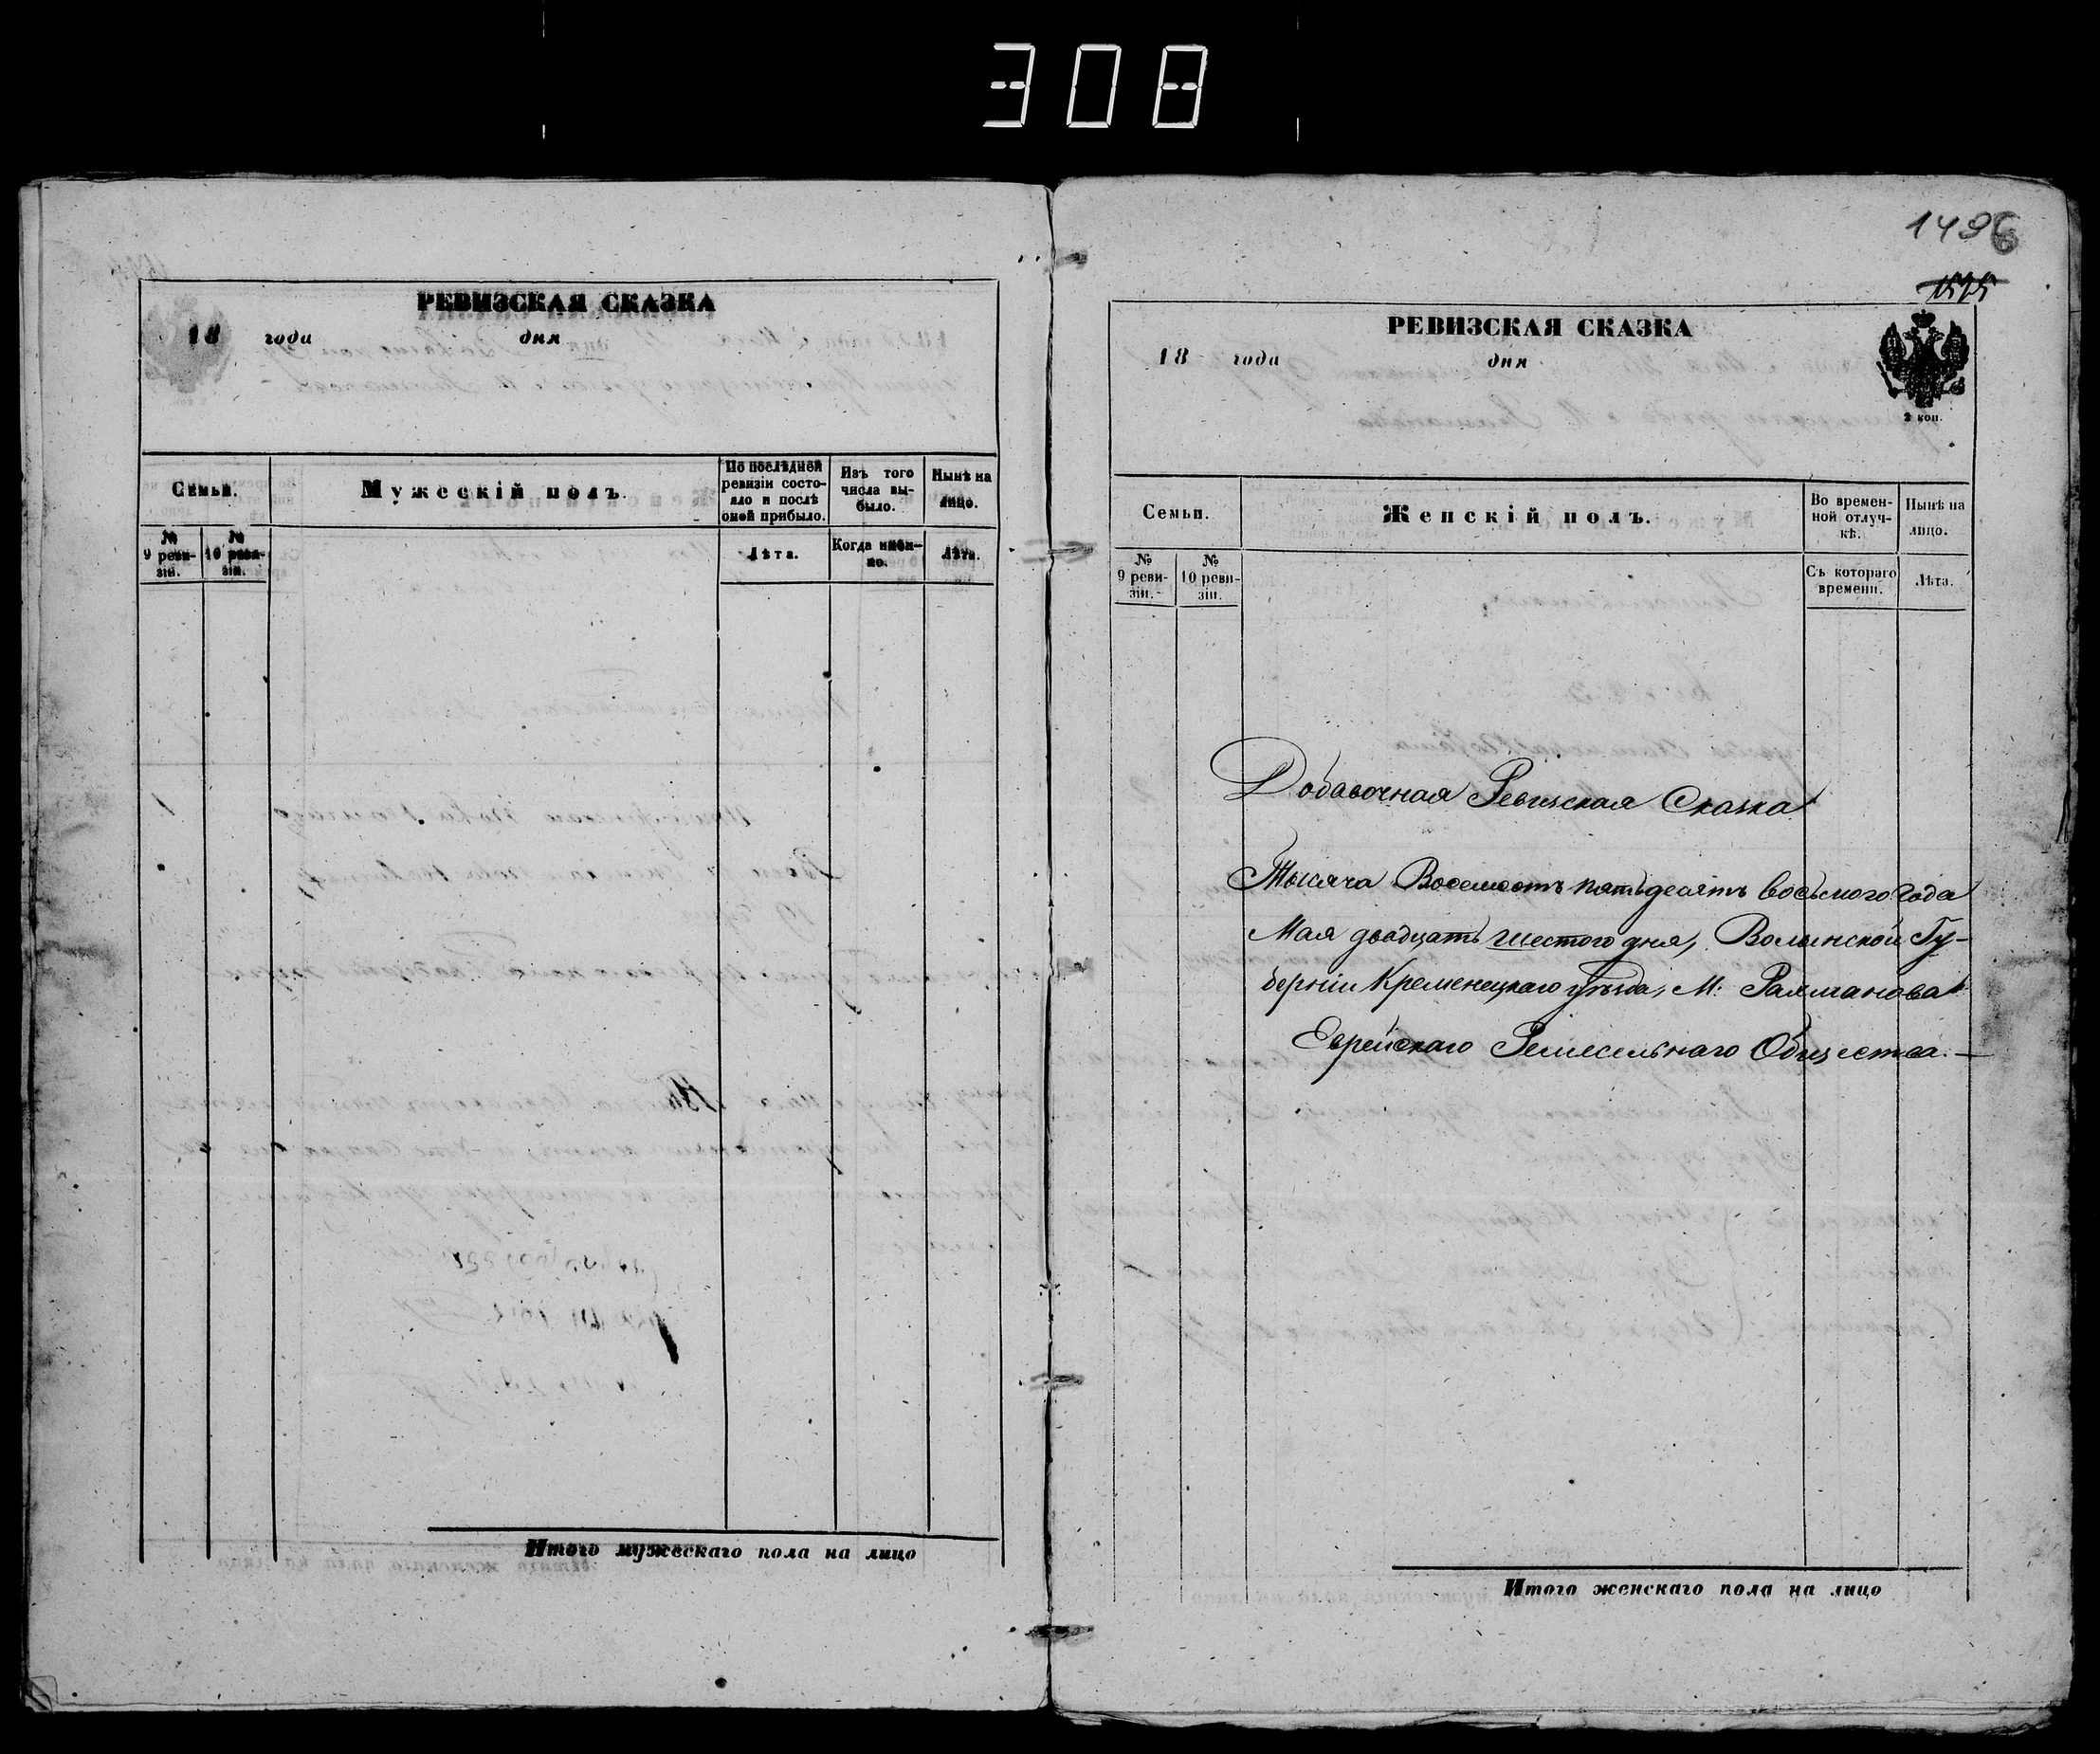 308
РЕВИЗСКАЯ СКАЗКА
18 года дня
Семьи.
Мужескій полъ.
По послѣдней ревизіи состо-
яло и послѣ
оной прибыло.
Изъ того
числа вы-
было.
Нынѣ на
лицо.
№
9 реви-
зіи.
№
10 реви-
зіи.
Лѣта.
Когда имен-
но.
Лѣта.
Итого мужескаго пола на лицо
1496
1515
РЕВИЗСКАЯ СКАЗКА
18 года дня
2 коп.
Семьи.
Женскій полъ.
Во времен-
ной отлуч-
кѣ.
Нынѣ на
лицо.
№
9 реви-
зіи.
№
10 реви-
зіи.
Съ котораго
времени.
Лѣта.
Добавочная Ревизская Сказка
Тысяча Восемсотъ пятьдесятъ восьмого года
Мая двадцать шестого дня, Волынской Гу-
берніи Кременецкаго уѣзда, М: Рахманова
Еврейскаго Ремесельнаго Общества.—
Итого женскаго пола на лицо